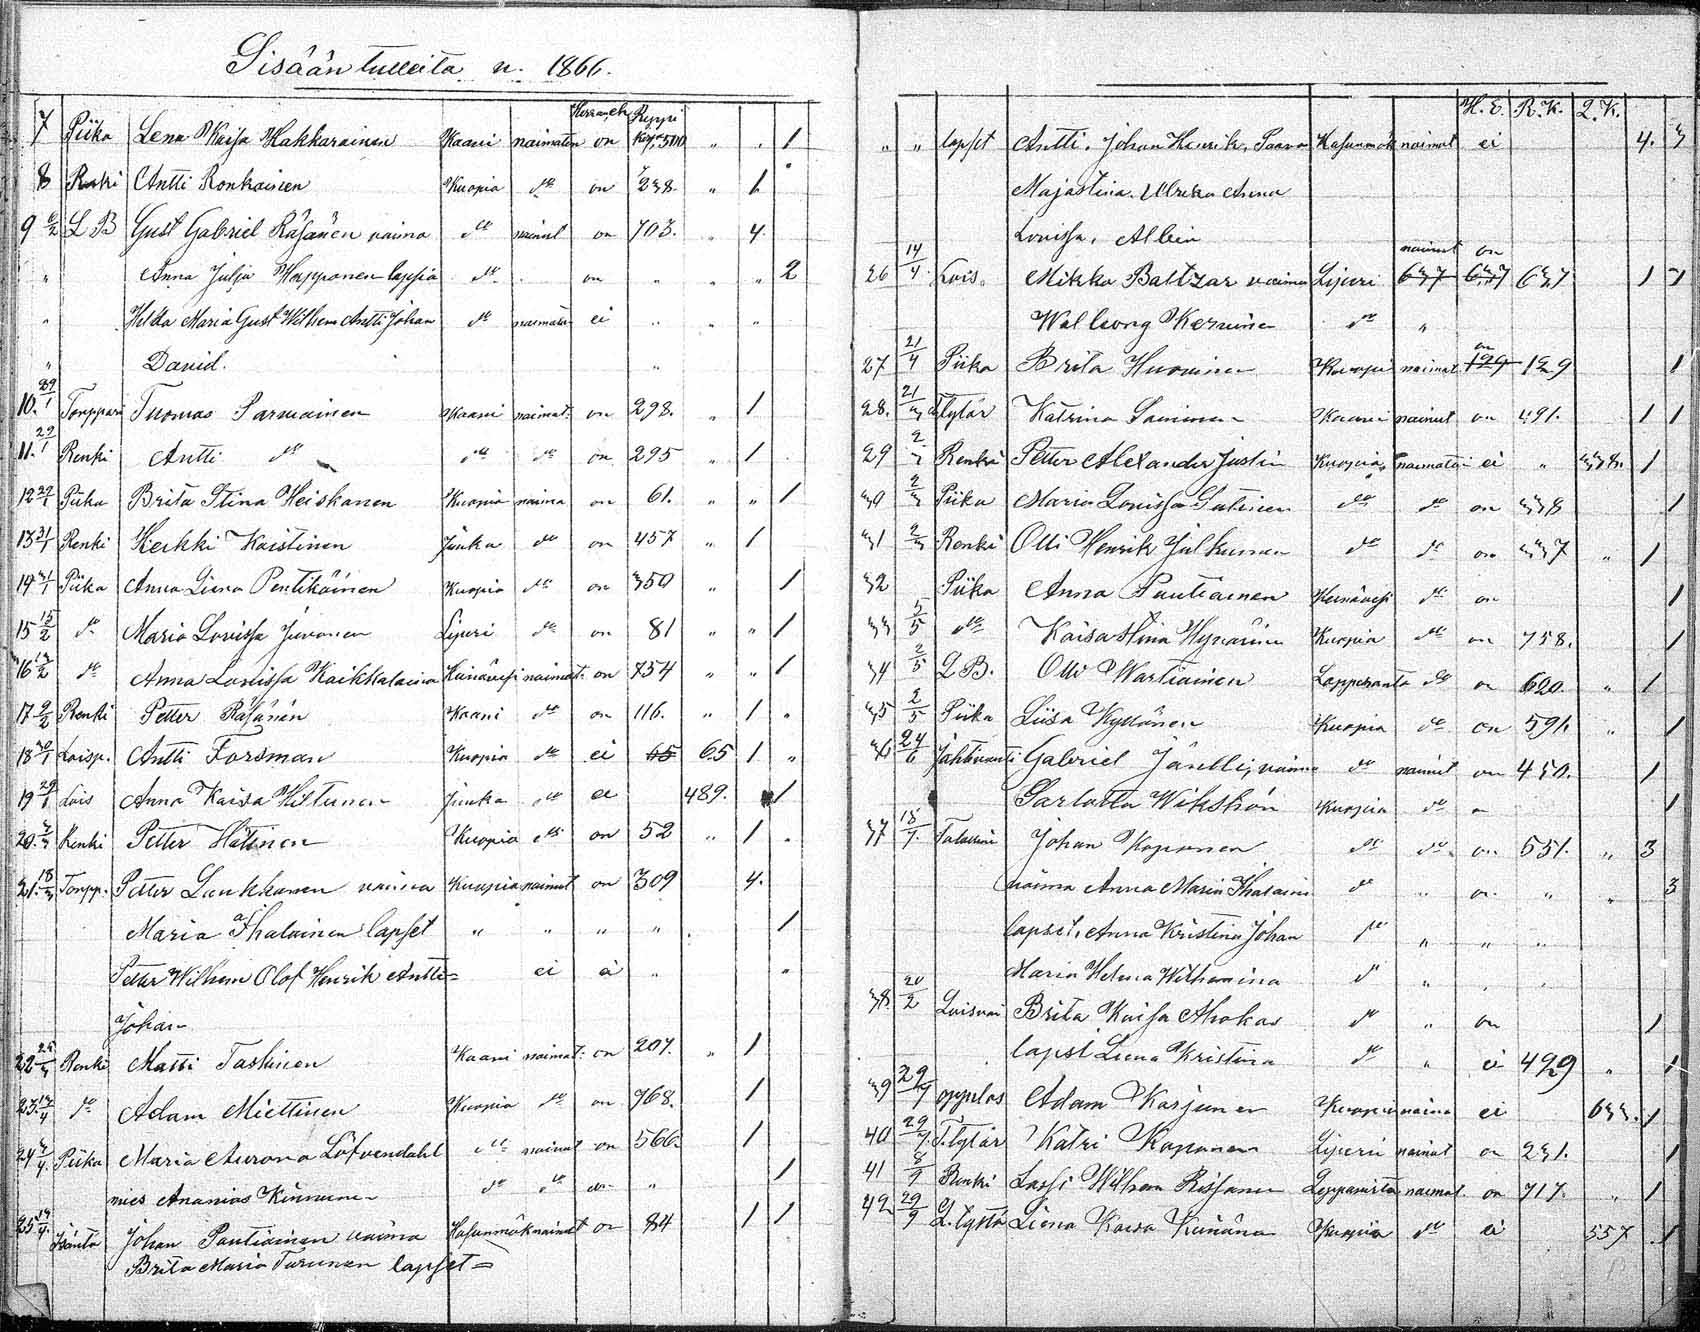 Sisääntulleita v. 1866.
7 Piika Lena Kaisa Hakkarainen Kaavi naimaton on 500 " " 1
8 Renki Antti Ronkainen Kuopio do on 238. " 1
9 L B Gust Gabriel Räsänen vaimo do nainut on 703. " 4.
" Anna Julja Happonen lapsia do on " " 2
" Hilda Maria Gust Wilhem Antti Johan do naimatoin ei " " "
" David. "
10. 29/1 Torppari Tuomas Sarmainen Kaavi naimat: on 298. " 1
11. 29/1 Renki Antti do do do on 295 " 1
12 Piika Brita Stina Heiskanen Kuopio naima on 61. " " 1
13 31/1 Renki Heikki Kaistinen Juuka do on 457 " 1
14 31/1 Piika Anna Liena Pentikäinen Kuopio do on 350 " 1
15 15/2 do Maria Lovissa Juvonen Liperi do on 81 " " 1
16 do Anna Lovissa Kaikkalainen Heinävesi naimat: on 754 " " 1
17 9/2 Renki Petter Räsänen Kaavi do on 116. " 1 "
18 Loisp. Antti Forsman Kuopio do ei 65 65 1 "
19 29/1 Lois Anna Kaisa Hiltunen Juuka do ei 489. 1
20. Renki Petter Hätinen Kuopio do on 52 " 1 "
21. 18/3 Torpp. Petter Laukkanen vaimo Kuopio nainut on 309 4.
Maria Ihalainen lapset " " " " 1
Petter Wilhem Olof Henrik Antti= ei ei " "
Johan
22 Renki Matti Taskinen Kaavi naimat: on 207. " 1
23. do Adam Miettinen Kuopio do on 768. 1
24 Piika Maria Aurora Löfvendahl do nainut on 566. 1
mies Ananias Kinnunen do do do " 1
25 Isäntä Johan Pautiainen vaimo nainut on 84 1 1
Brita Maria Turunen lapset =
H.E. R.K. L.K.
" " lapset Antti, Johan Henrik, Paavo naimat ei 4. 3
Majastina. Ulrika Anna
Lovissa, Albin
nainut on
26 14/4 Lois. Mikko Baltzar vaimo Liperi 637 637 637 1 1
Walborg Kerminen do "
on
27 21/4 Piika Brita Huovinen Kuopio naimat 129 129 1
28. Katrina Saininen Kaavi naimat on 491. 1 1
29 Renki Petter Alexander Justin Kuopio naimatoin ei " 338. 1
30 Piika Maria Lovissa do do on 338 1
31 Renki Olli Henrik Julkunen do do on 337 " 1
32 Piika Anna Pautiainen Heinävesi do on 1
33 5/5 do Kaisa Stina Hyvärinen Kuopio do on 758. 1
34 2/5 L B. Olli Wartiainen Lapperanta do on 620. " 1
35 2/5 Piika Liisa Kyllönen Kuopio do on 591. 1
36 24/6 Jahtivouti Gabriel vaimo do naimut on 450. 1
Sarlotta Wikström Kuopio do " 1
37 Johan Koponen do do on 551. " 3
vaimo Anna Maria Ihalainen do " on " " 3
lapset, Anna Kristina Johan do " " "
Maria Helena Wilhemina do " " "
38 20/2 Loisvai Brita Kaisa Ahokas do " on 1
lapsi Liena Kristina do " ei 429 " 1
39 opplas Adam Karjunen Kuopio naima ei 633. 1
40 T. tytär Katri Koponen Liperi naimat on 231. 1
41 8/9 Renki Lassi Wilhem Rissanen Lapparista naimat. on 717. " 1
42 29/9 Liena Kaisa Kuopio do ei 557 1